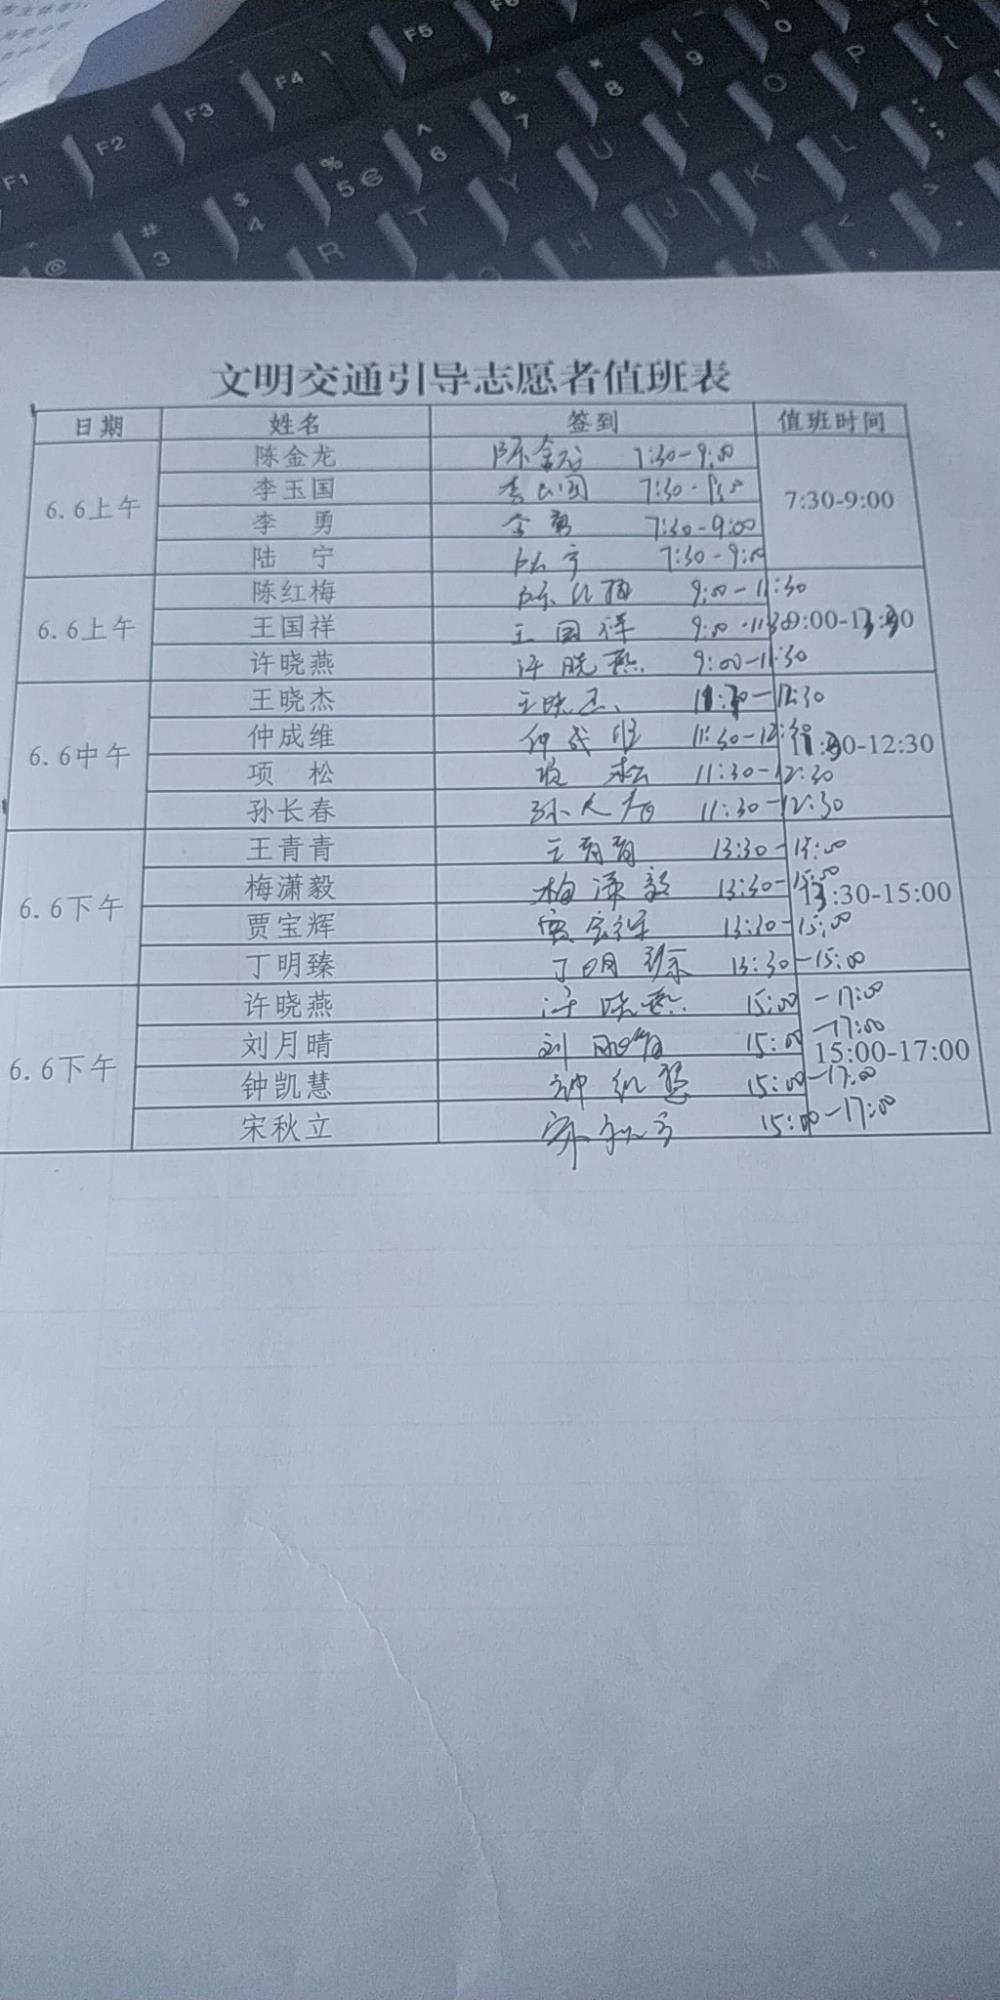 F1 F2 F3 F4 F5
@ # 3 $ 4 % 5 € ^ 6 & 7 * 8 ( 9 ) 0
R T Y U I O P
H J K L : ;
M < , > .
文明交通引导志愿者值班表
日期 姓名 签到 值班时间
6.6上午 7:30-9:00
陈金龙 陈金龙 7:30-9:00
李玉国 李玉国 7:30-9:00
李 勇 李勇 7:30-9:00
陆 宁 陆宁 7:30-9:00
6.6上午
陈红梅 陈红梅 9:00-11:30
王国祥 王国祥 9:00-11:30
许晓燕 许晓燕 9:00-11:30
6.6中午 11:30-12:30
王晓杰 王晓杰 11:30-12:30
仲成维 仲成维 11:30-12:30
项 松 项松 11:30-12:30
孙长春 孙长春 11:30-12:30
6.6下午 13:30-15:00
王青青 王青青 13:30-15:00
梅潇毅 梅潇毅 13:30-15:00
贾宝辉 贾宝辉 13:30-15:00
丁明臻 丁明臻 13:30-15:00
6.6下午 15:00-17:00
许晓燕 许晓燕 15:00-17:00
刘月晴 刘月晴 15:00-17:00
钟凯慧 钟凯慧 15:00-17:00
宋秋立 宋秋立 15:00-17:00